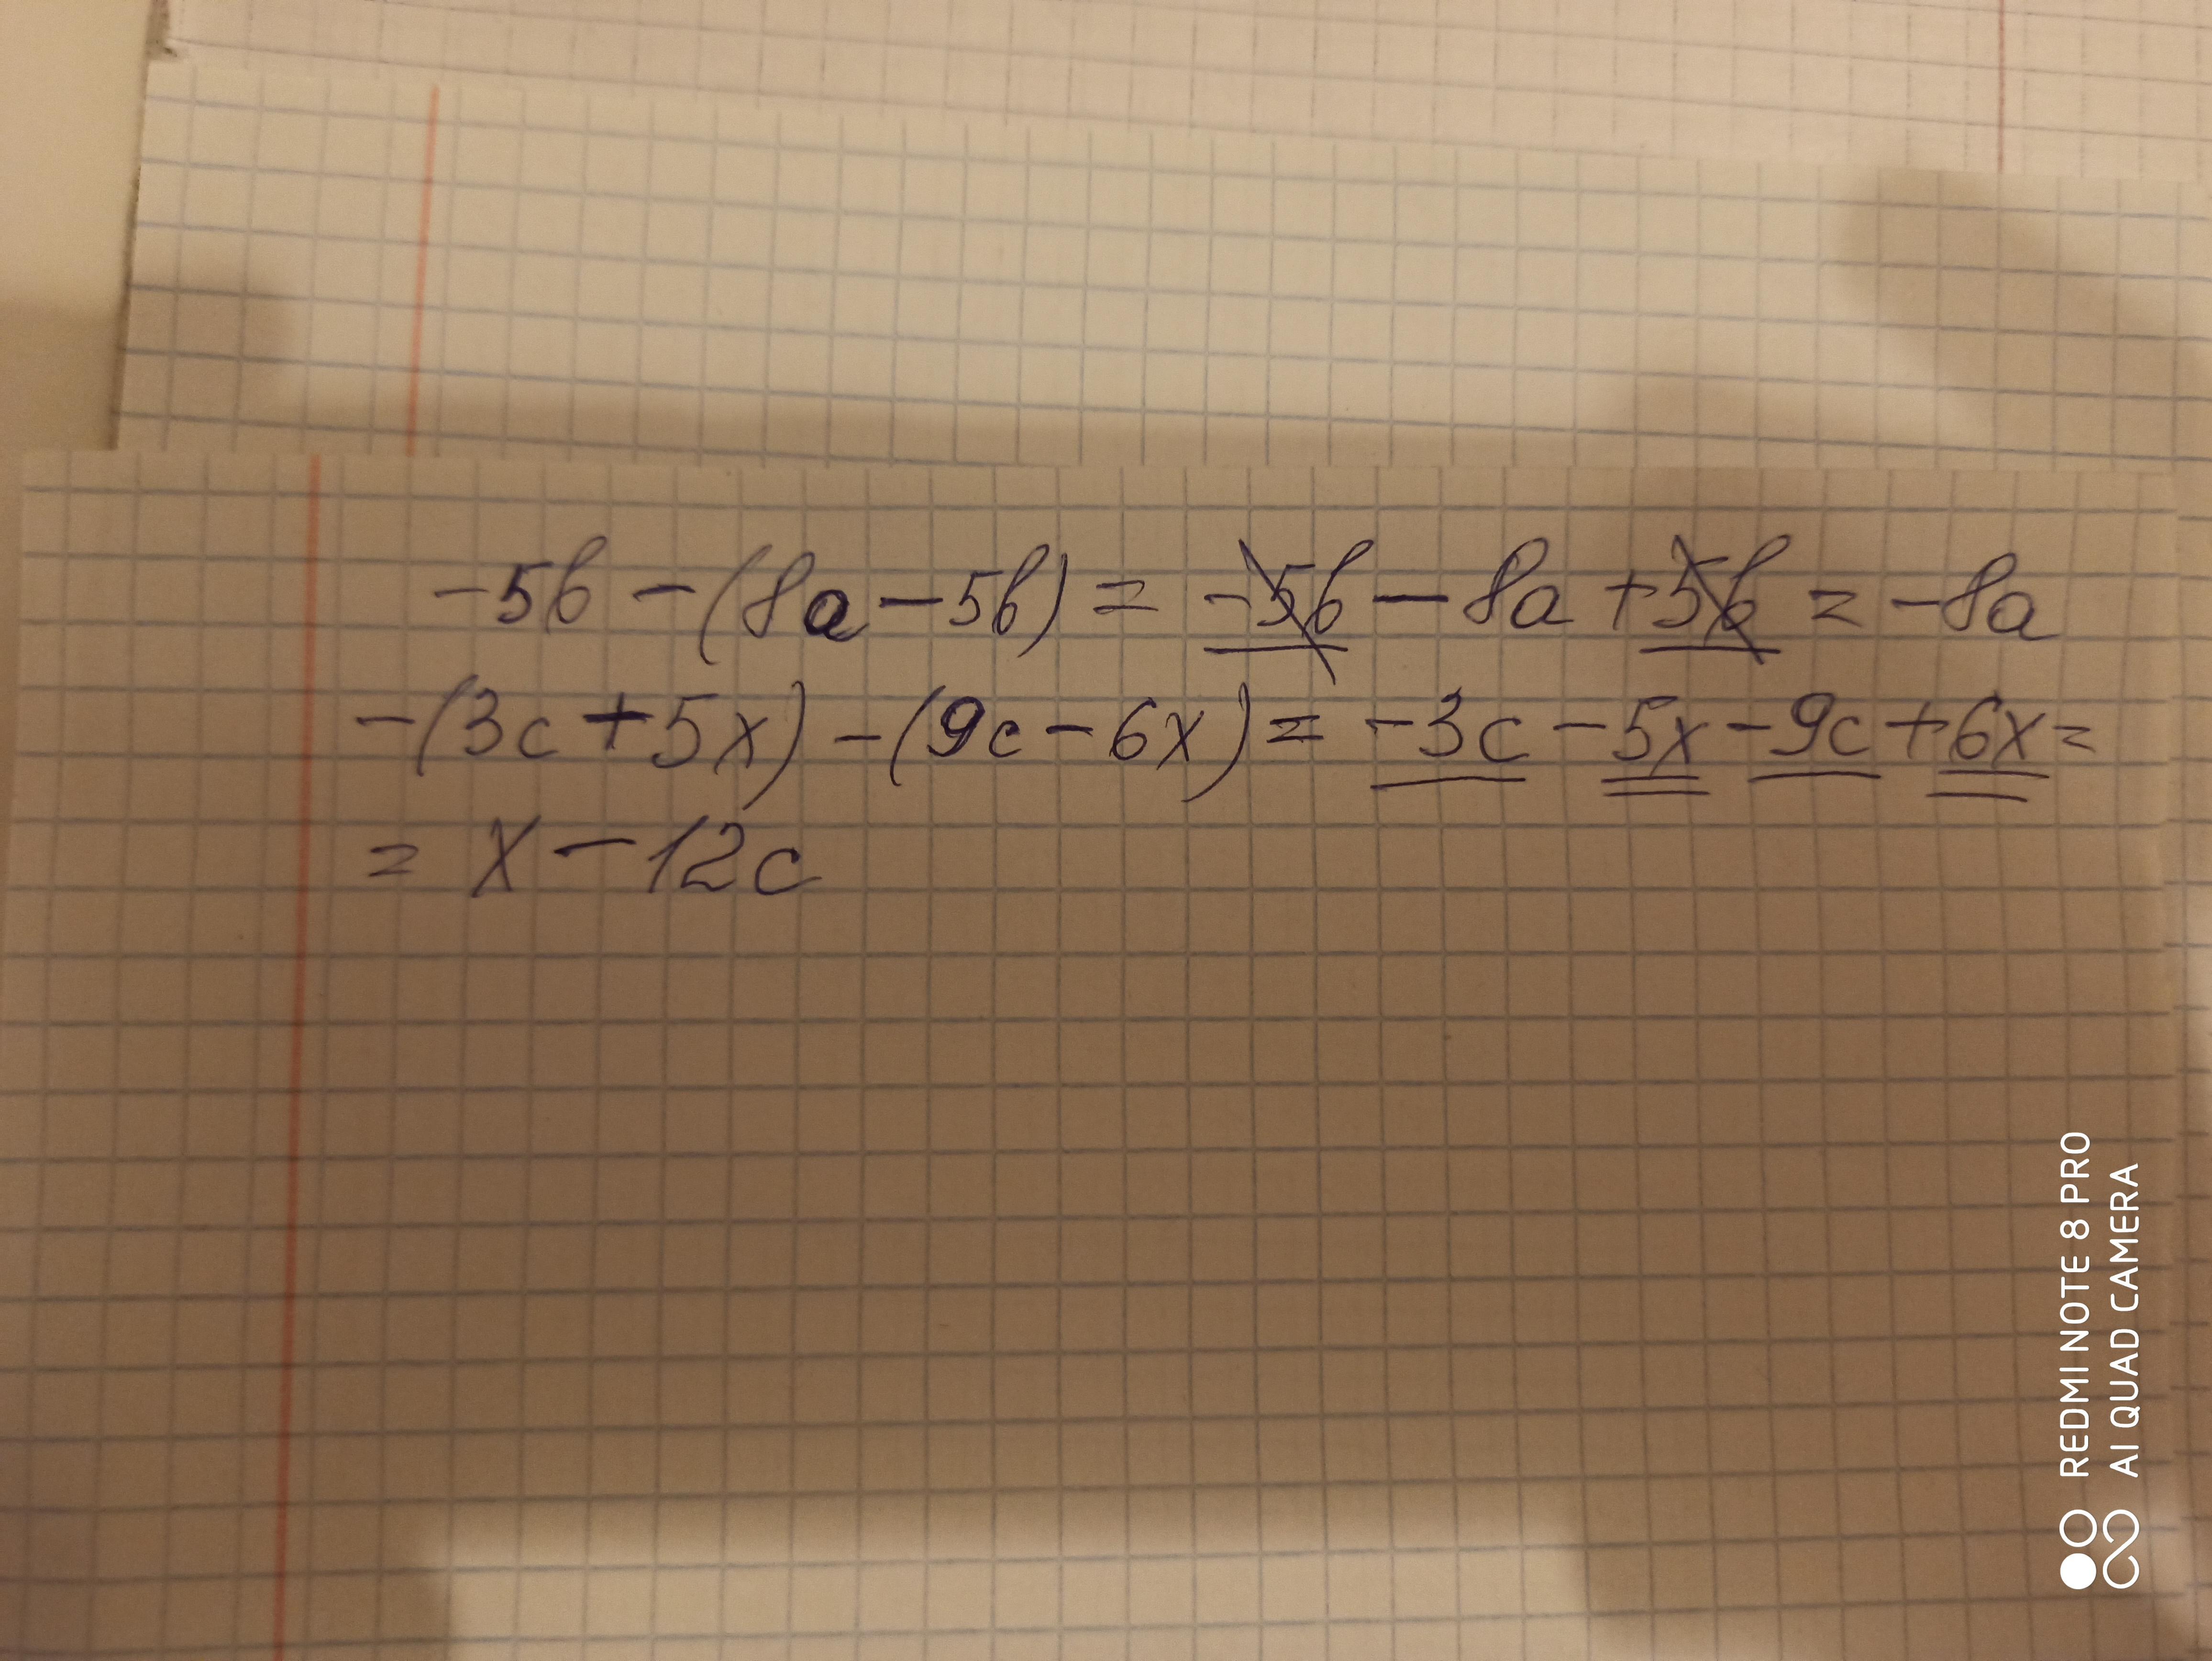 -5b - (8a - 5b) = -5b - 8a + 5b = -8a
-(3c + 5x) - (9c - 6x) = -3c - 5x - 9c + 6x =
= x - 12c
REDMI NOTE 8 PRO
AI QUAD CAMERA